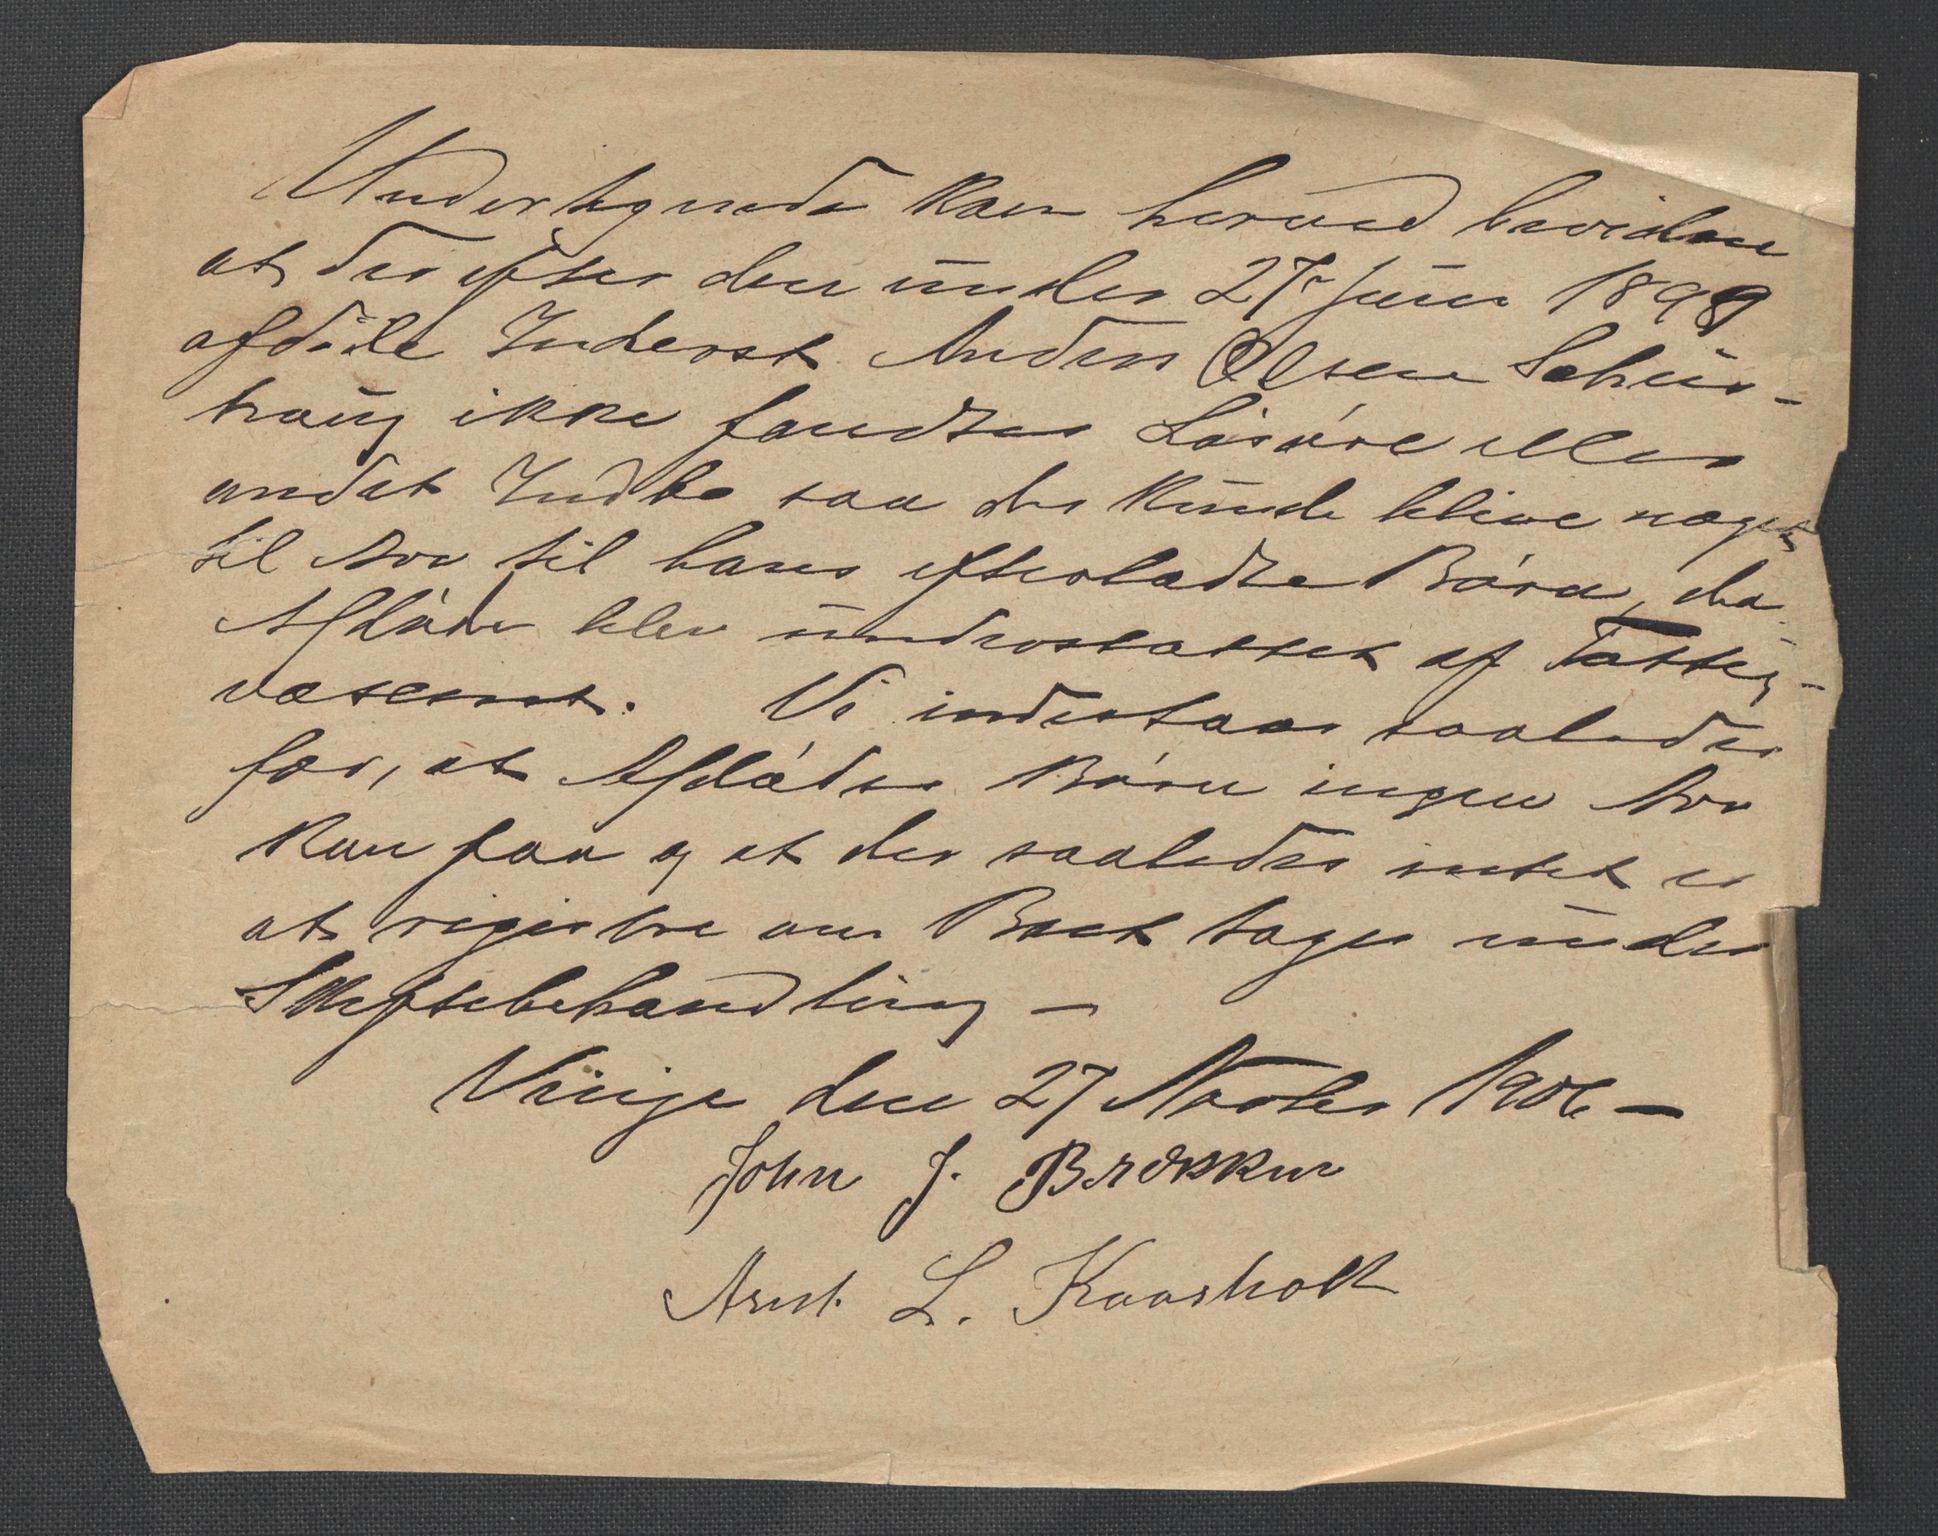 Undertegnede kan herved bevidne
at der efter den under 27 Juni 1899
afdøde Inderst Anders Olsen Schus-
haug ikke fandtes Løsøre eller
andet Indbo saa der kunde blive noget
til Arv til hans efterladte Børn, da
Afdøde blev understøttet af Fattig-
væsenet. Vi inderstaar saaledes
for, at Afdødes Børn ingen Arv
kan faa og at der saaledes intet er
at registrere om Boet tages under
Skiftebehandling —
Vinje den 27 Novber 1906 —
John J. Brøkker
Arnt. L. Kaarsholt